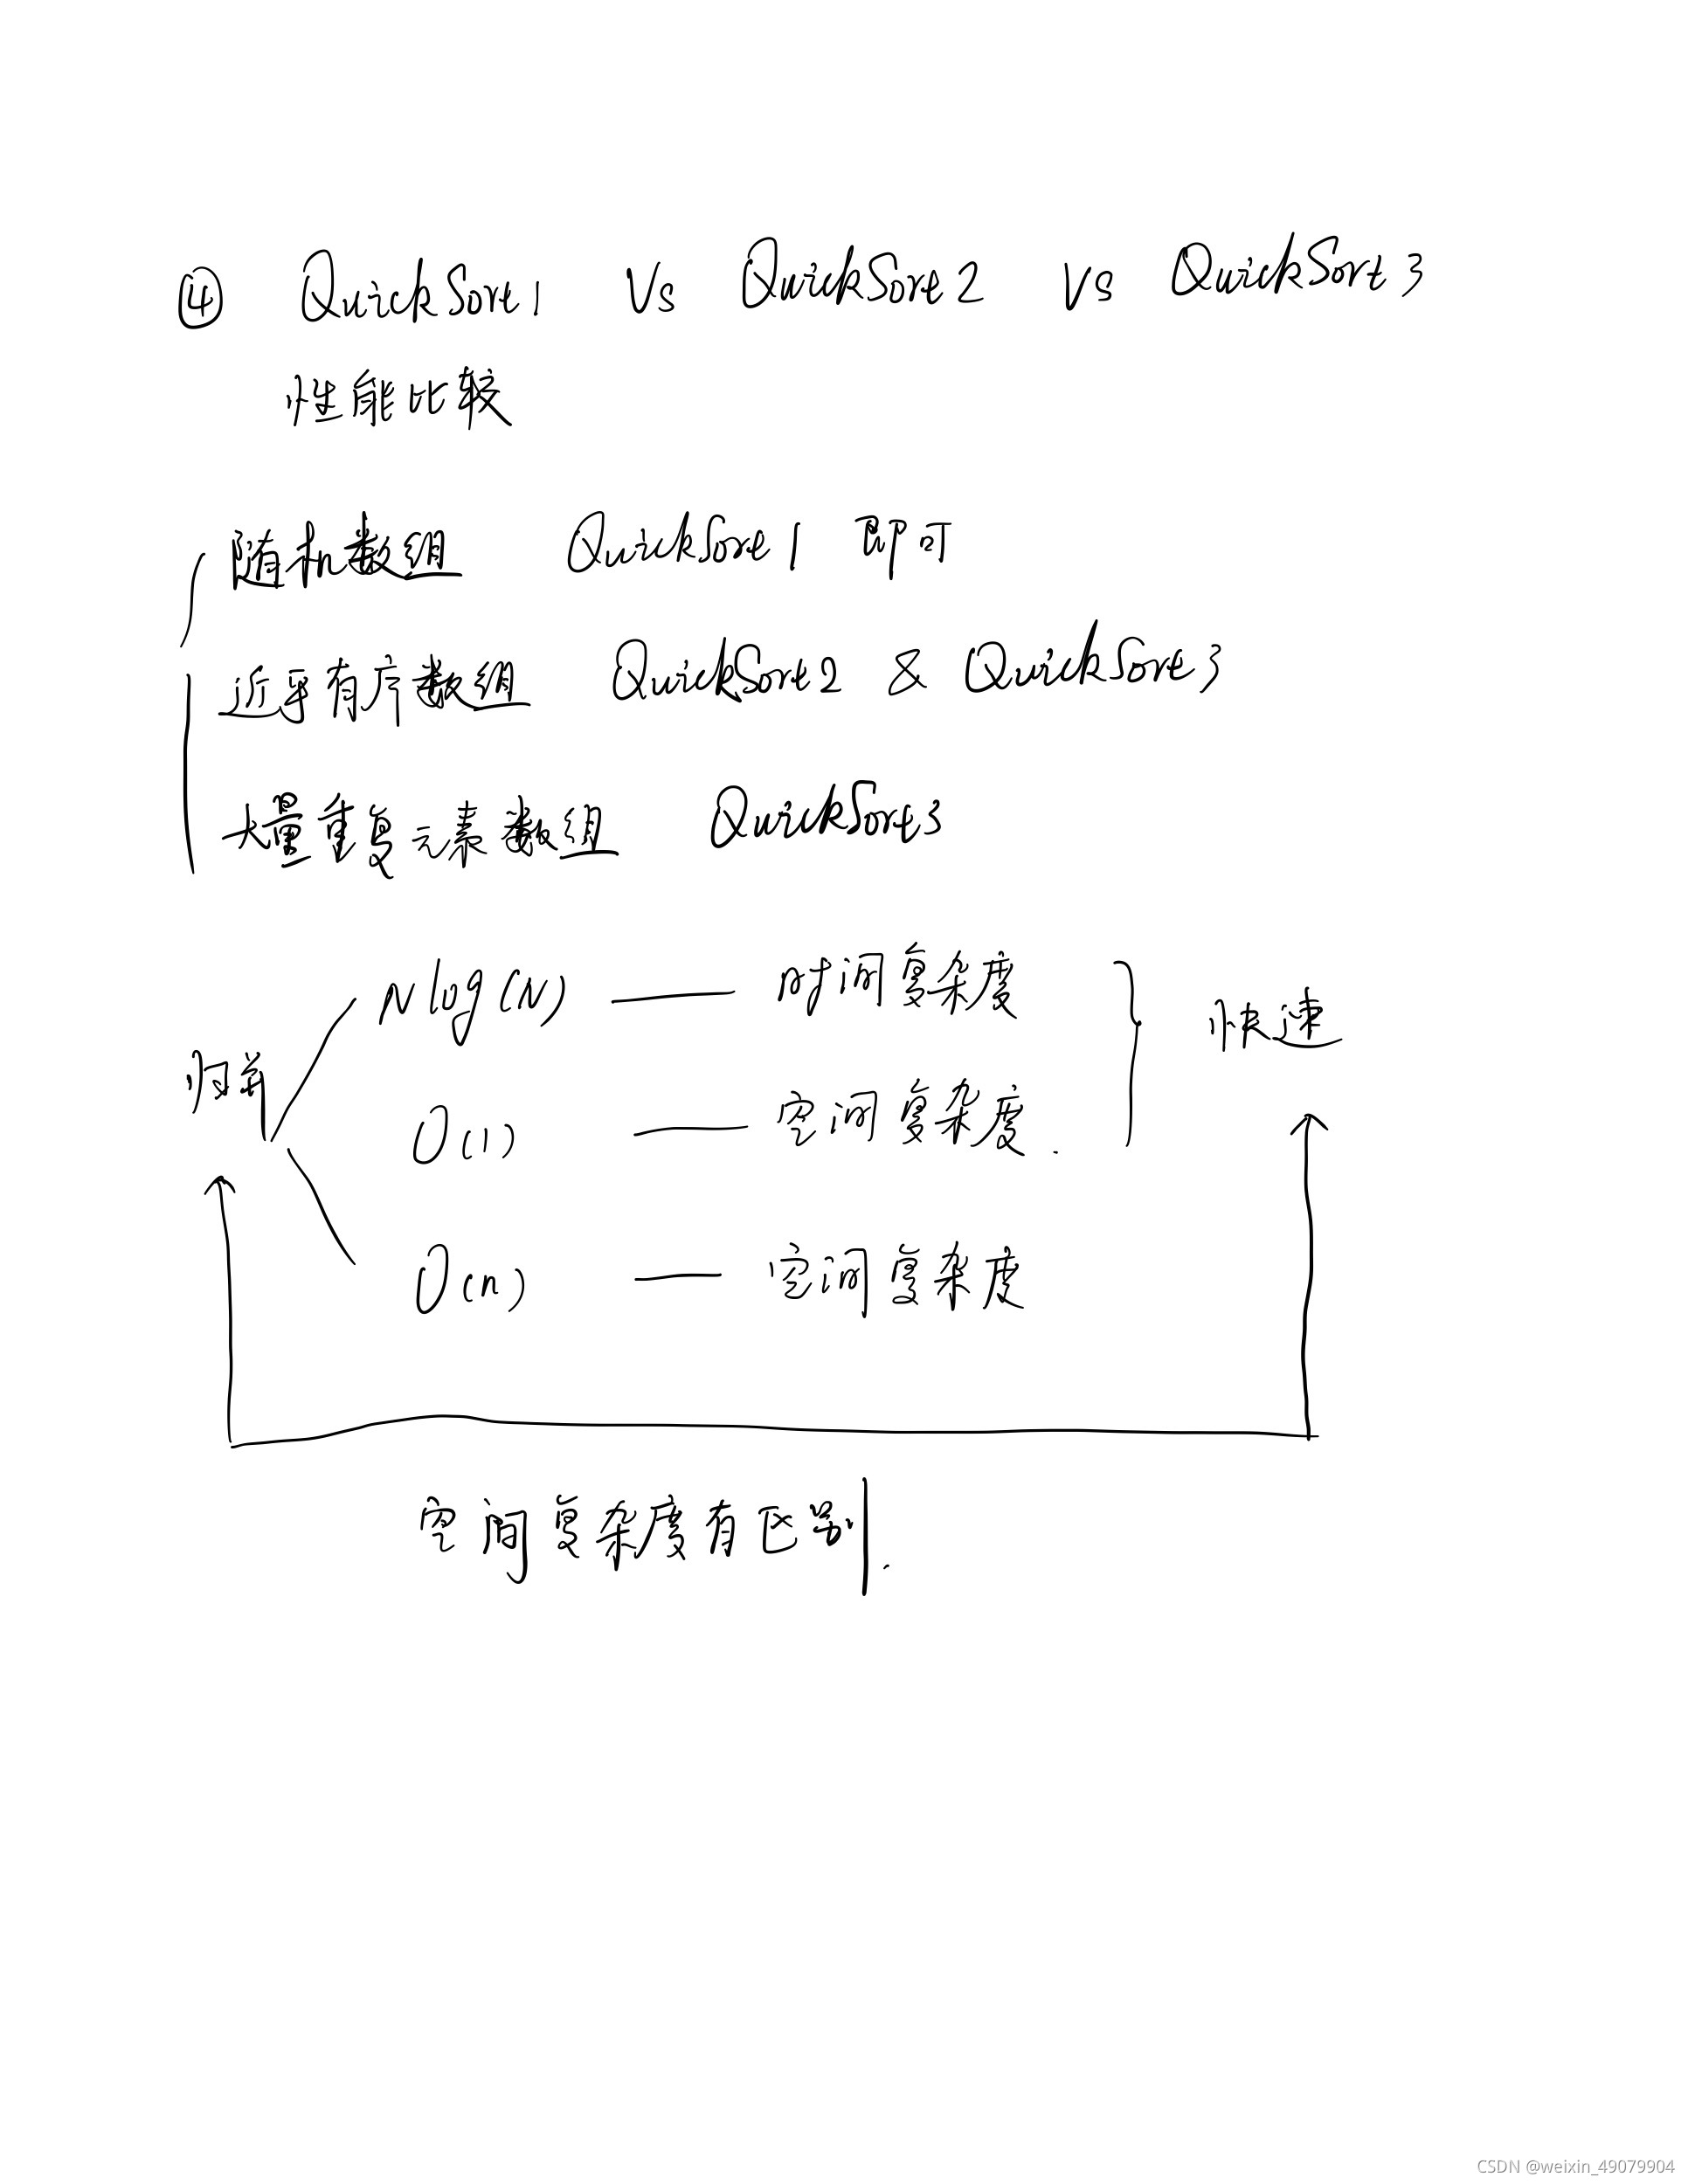 ④ QuickSort1 Vs QuickSort2 Vs QuickSort3
性能比较
随机数组 QuickSort1 即可
近乎有序数组 QuickSort2 & QuickSort3
大量重复元素数组 QuickSort3
Nlog(N) — 时间复杂度
快速
归并
O(1) — 空间复杂度.
O(n) — 空间复杂度
空间复杂度有区别.
CSDN @weixin_49079904